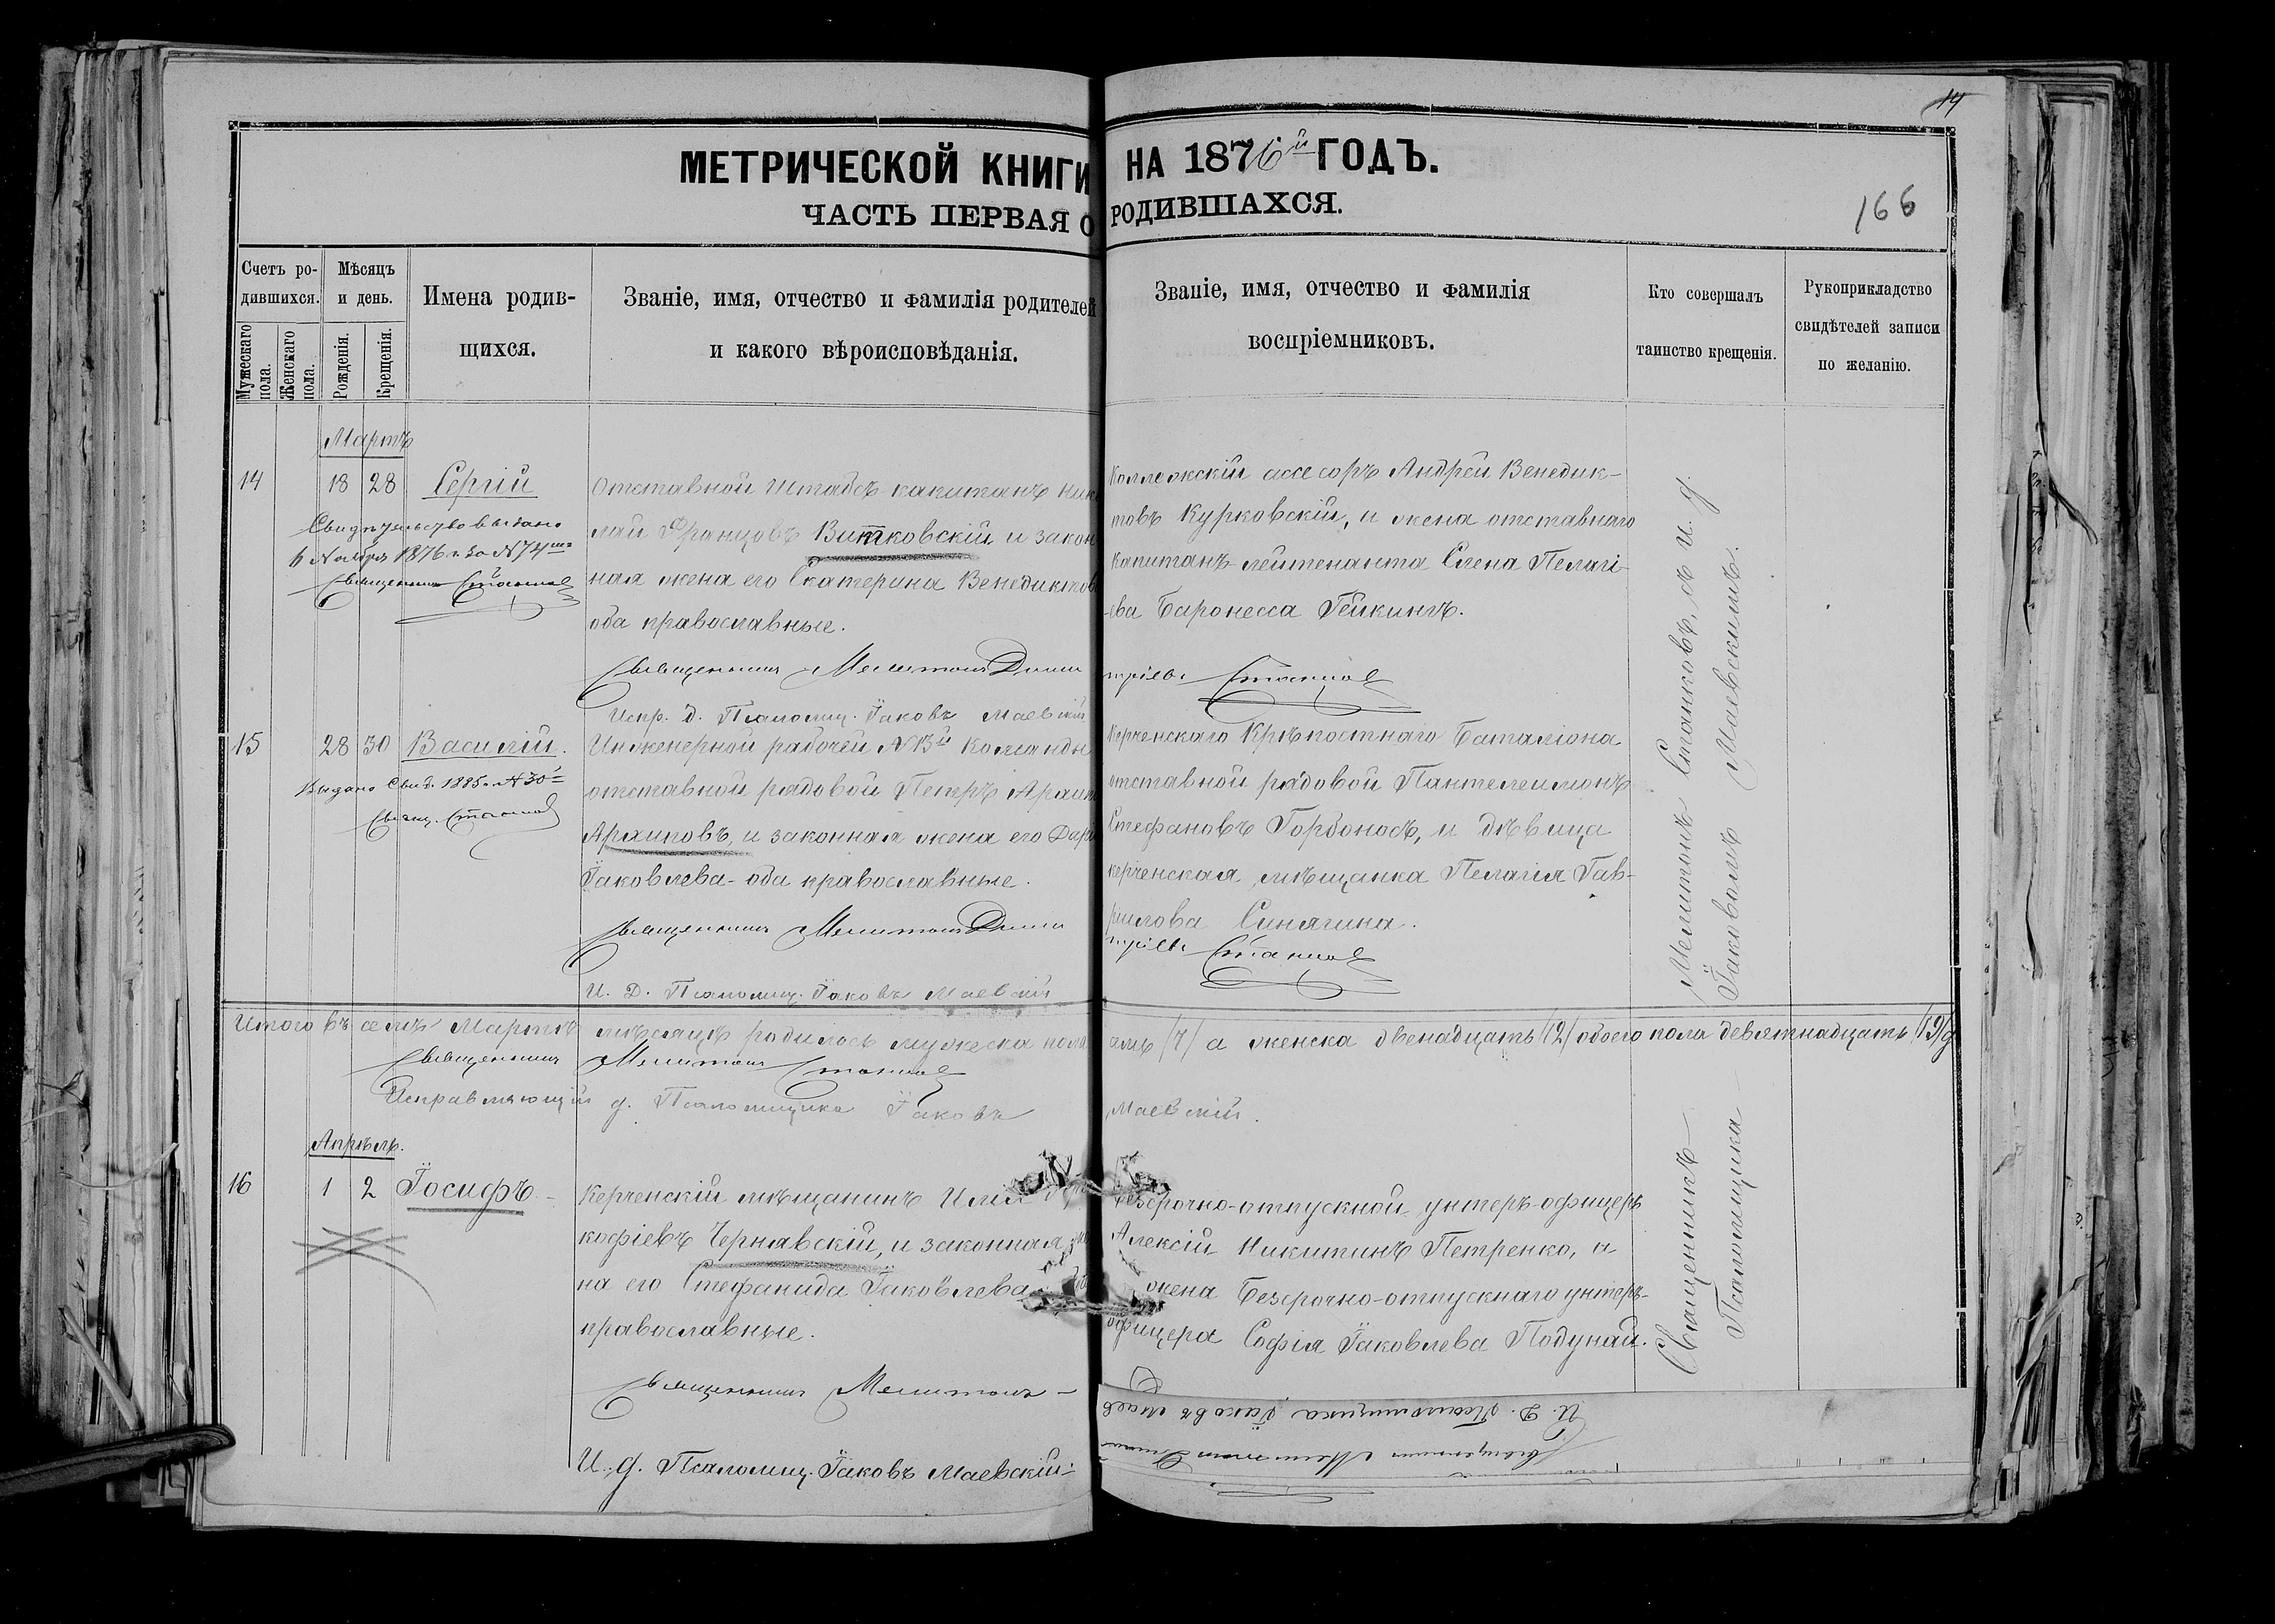 14
МЕТРИЧЕСКОЙ КНИГИ НА 1876й ГОДЪ.
ЧАСТЬ ПЕРВАЯ О РОДИВШАХСЯ.
166
Счетъ ро-
дившихся.
Мужескаго пола.
Женскаго пола.
Мѣсяцъ
и день.
Рожденія.
Крещенія.
Имена родив-
щихся.
Званіе, имя, отчество и фамилія родителей
и какого вѣроисповѣданія.
Званіе, имя, отчество и фамилія
воспріемниковъ.
Кто совершалъ
таинство крещенія.
Рукоприкладство
свидѣтелей записи
по желанію.
Мартъ
14 18 28 Сергій
Свидѣтельство выдано
6 Ноября 1876 г. за №
Священникъ Станковъ
Отставной Штабсъ-капитанъ Нико
лай Францовъ Витковскій и закон
ная жена его Екатерина Венедиктов
оба православные.
Священникъ Мелитонъ Дими
Испр. д. Псаломщ. Іаковъ Маевскій
Коллежскій ассесоръ Андрей Венедик-
товъ Курковскій, и жена отставнаго
Капитанъ-лейтенанта Елена Пелагі-
ева Баронесса Гейкингъ.
тріевъ Станковъ
15 28 30 Василій.
Выдано Свид. 1885 г. № 30
Свящ. Станковъ
Инженерной рабочей № 3й Команды
отставной рядовой Петръ Архип
Архиповъ, и законная жена его Дарі
Іаковлева - оба православные.
Священникъ Мелитонъ Дими
И. Д. Псаломщ. Іаковъ Маевскій
Керченскаго Крѣпостнаго Баталіона
отставной рядовой Пантелеимонъ
Стефановъ Горбоносъ, и дѣвица
керченская мѣщанка Пелагія Гав-
рилова Синягина.
тріевъ Станковъ
Итого въ семъ Мартѣ мѣсяцѣ родилось мужеска пола семь /7/ а женска двенадцать /12/ обоего пола девятнадцать /19/
Священникъ Мелитонъ Станковъ
Исправляющій д. Псаломщика Іаковъ Маевскій.
Апрѣль.
16 1 2 Іосифъ
Керченскій мѣщанинъ Илія
кофіевъ Чернявскій, и законная
на его Стефанида Іаковлева
православные.
Священникъ Мелитонъ
И. д. Псаломщ. Іаковъ Маевскій
Безсрочно-отпускной унтеръ-офицеръ
Алексій Никитинъ Петренко, и
жена Безсрочно-отпускнаго унтеръ-
офицера Софія Іаковлева Подунай.
Священникъ Мелитонъ Станковъ, съ И. д.
Псаломщика Іаковомъ Маевскимъ.
И. Д. Псаломщика Іаковъ Маев
Священникъ Мелитонъ Дими